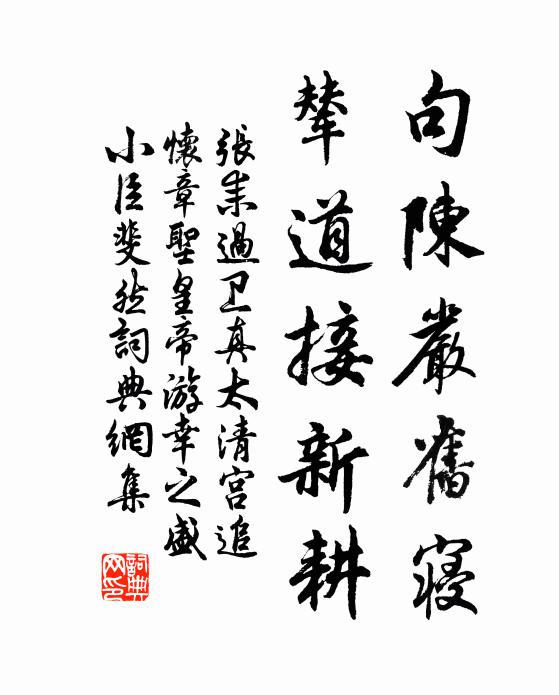 句陳嚴舊寢
輦道接新耕
張耒過卫真太清宮追
懷章聖皇帝游幸之盛
小臣斐然詞典網集
詞典
网印